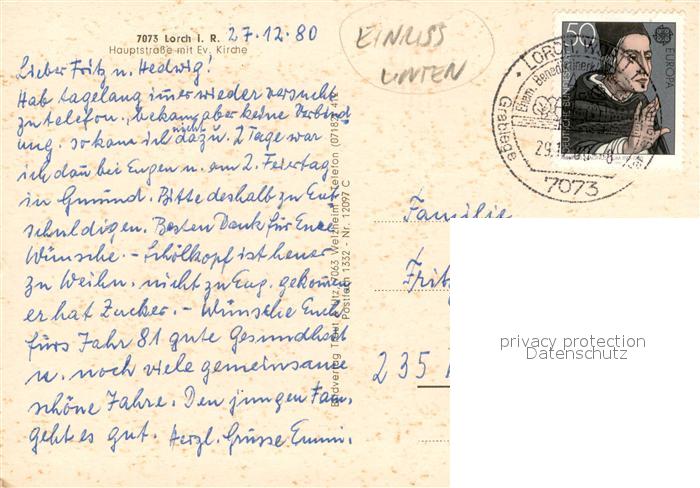 7073 Lorch i. R.
Hauptstraße mit Ev. Kirche
27.12.80
EINRISS
UNTEN
Lieber Fritz u. Hedwig!
Hab tagelang immer wieder versucht
zu telefon., bekam aber keine Verbind
ung. so kam ich nicht dazu. 2 Tage war
ich dau bei Eugen u. am 2. Feiertag
in Gmünd. Bitte deshalb zu Ent
schuldigen. Besten Dank für Eure
Wünsche. – Schölkopf ist heuer
zu Weihn. nicht zu Eug. gekommen
er hat Zucker. – Wünsche Euch
fürs Jahr 81 gute Gesundheit
u. noch viele gemeinsame
schöne Jahre. Den jungen Fam.
geht es gut. Herzl. Grüsse Emmi.
7063 Welzheim Telefon
Postfach 1332 - Nr. 12097 C
50
EUROPA
LORCH, WÜRTT
Ehem. Benediktiner
7073
Familie
Fritz
235
privacy protection
Datenschutz